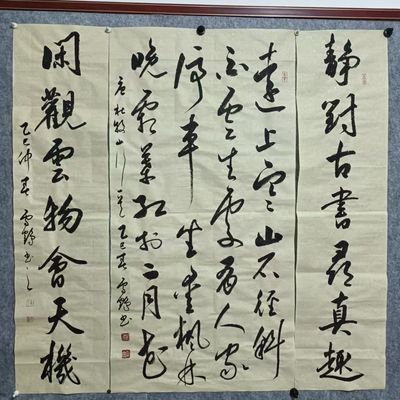 静對古書尋真趣
遠上寒山石徑斜
白雲生處有人家
停車坐愛楓林
晚霜葉紅於二月花
唐杜牧山行一首乙巳春書
閑觀雲物會天機
乙巳仲春書之